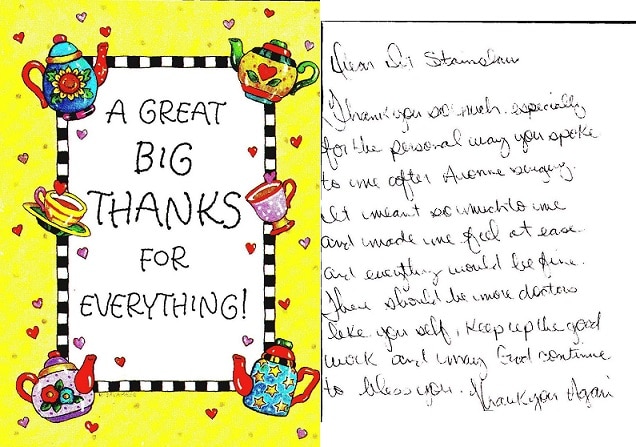 A GREAT
BIG
THANKS
FOR
EVERYTHING!
Dear Dr Stanislaw
Thank you so much especially
for the personal way you spoke
to me after surgery.
It meant so much to me
and made me feel at ease
and everything would be fine.
There should be more doctors
like your self. Keep up the good
work and may God continue
to bless you. Thank you Again